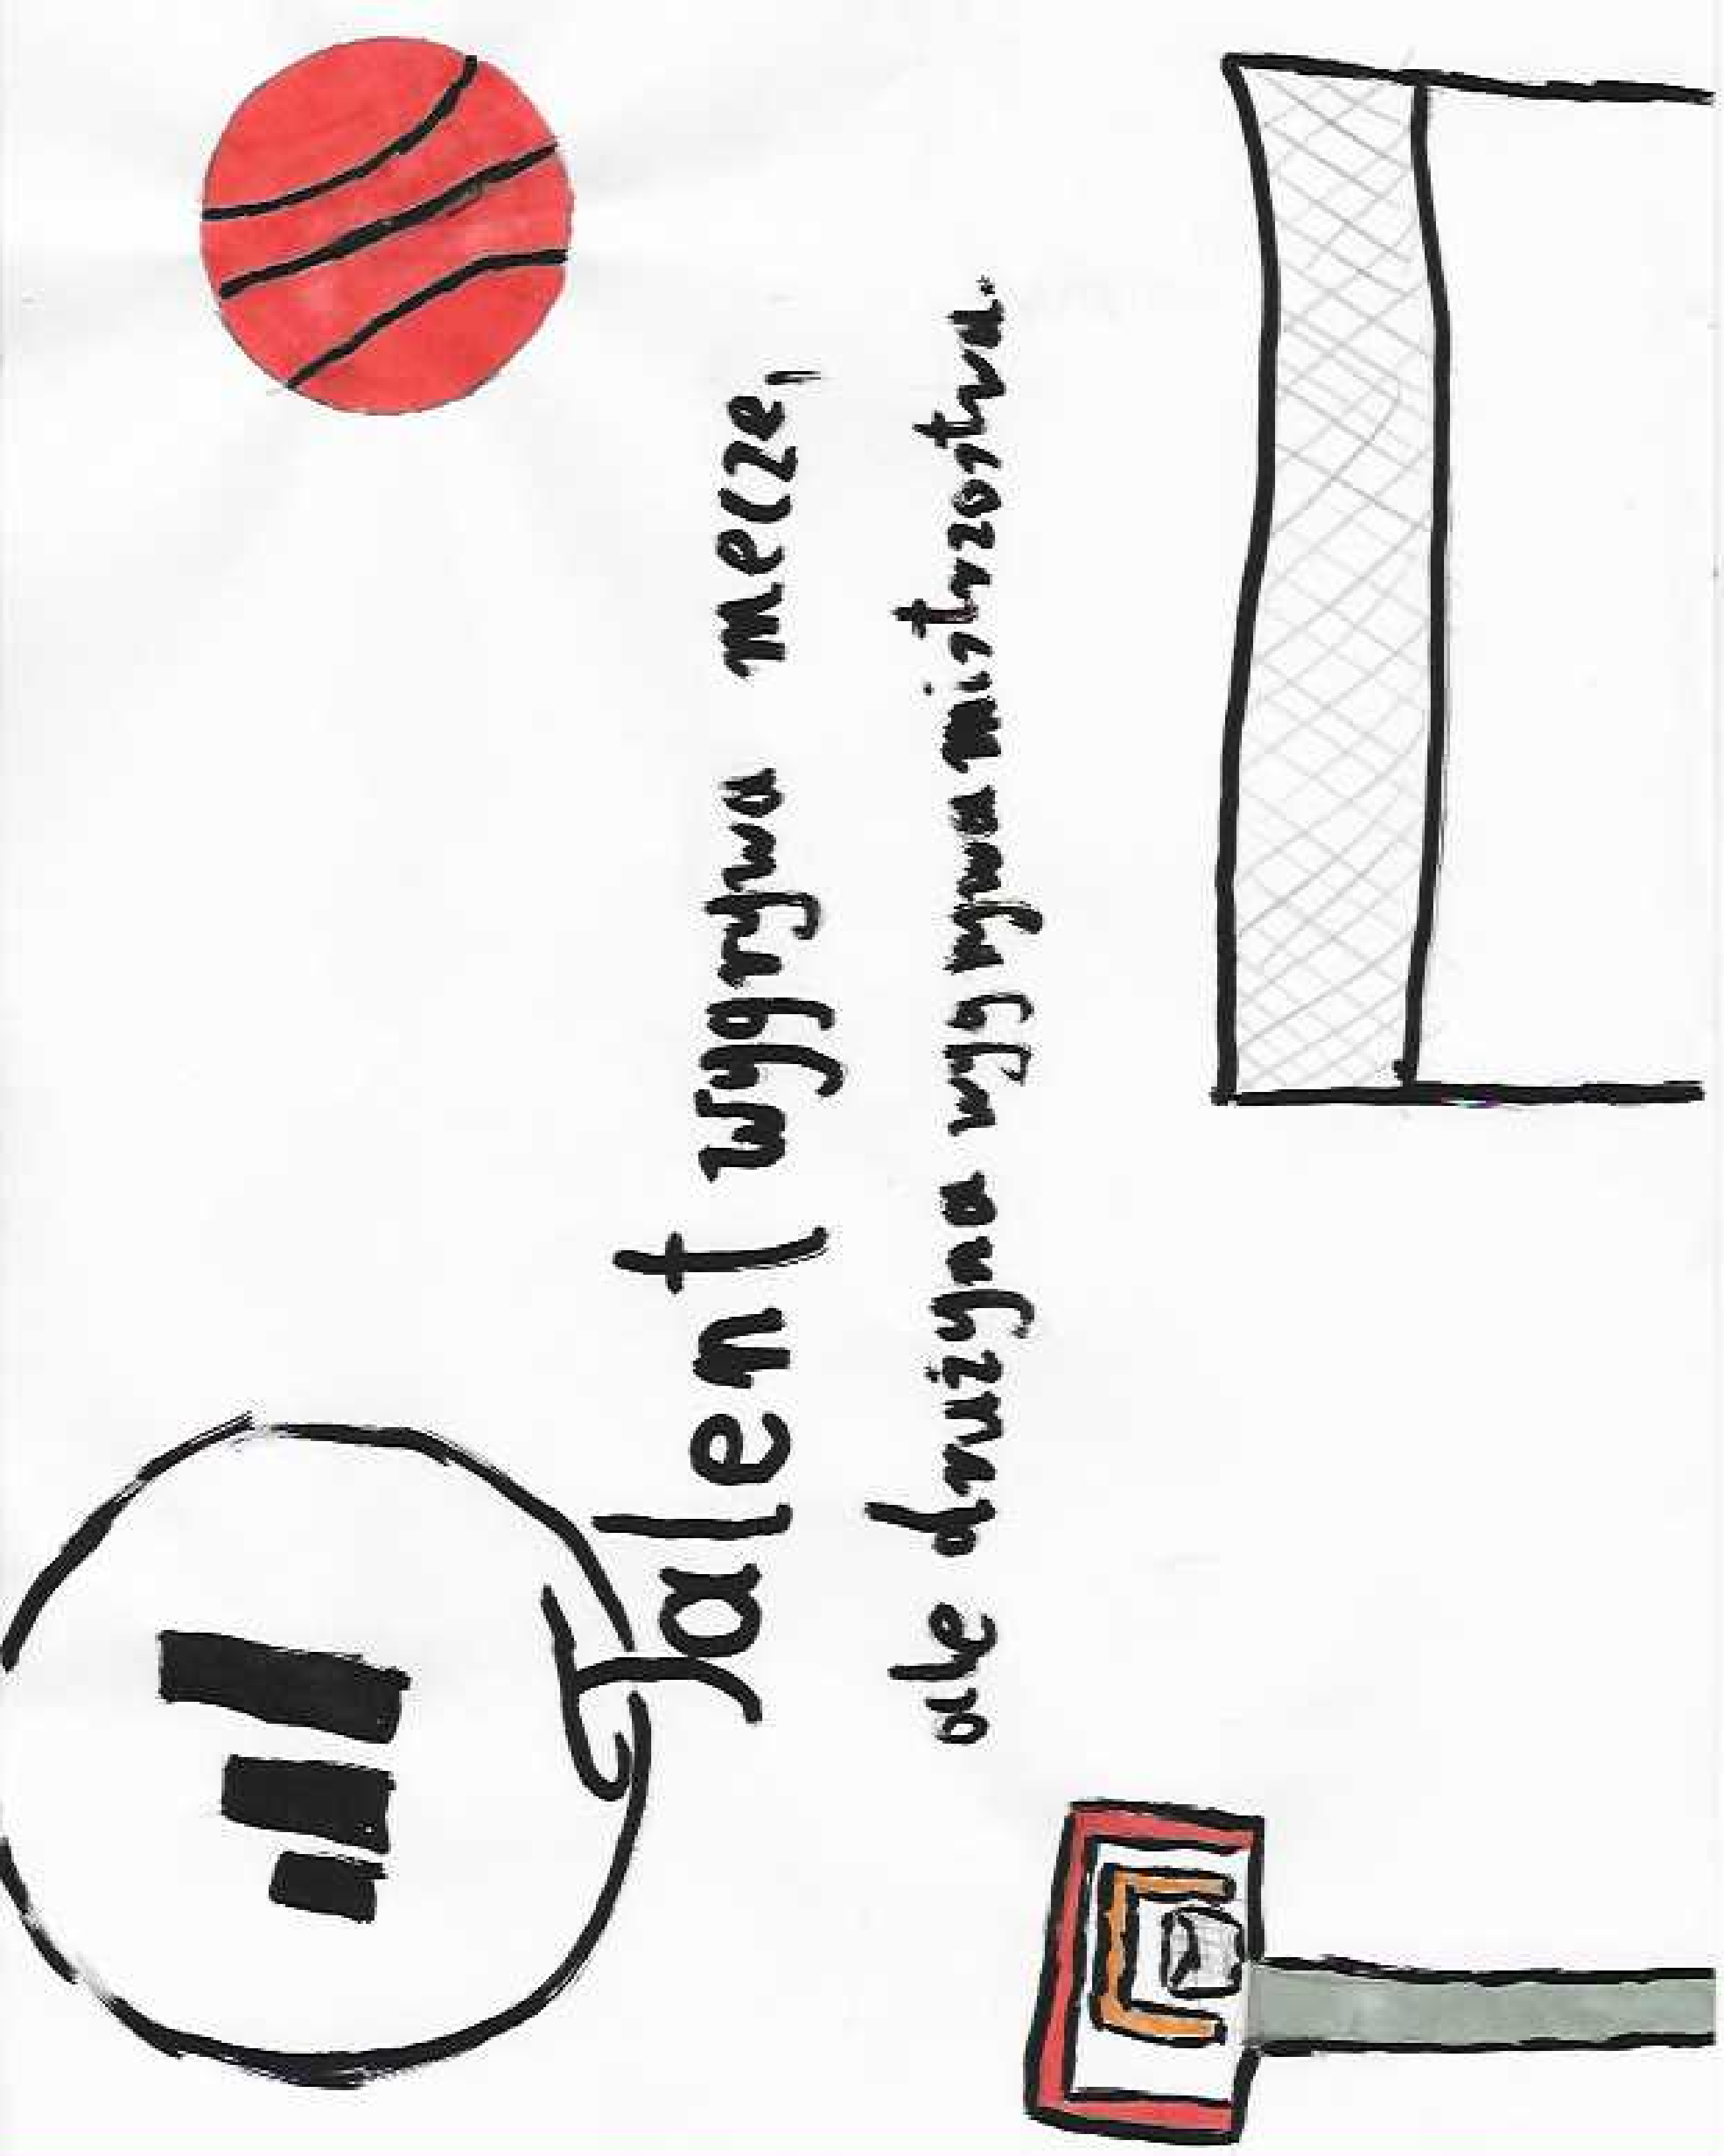 Talent wygrywa mecze,
ale drużyna wygrywa mistrzostwa.